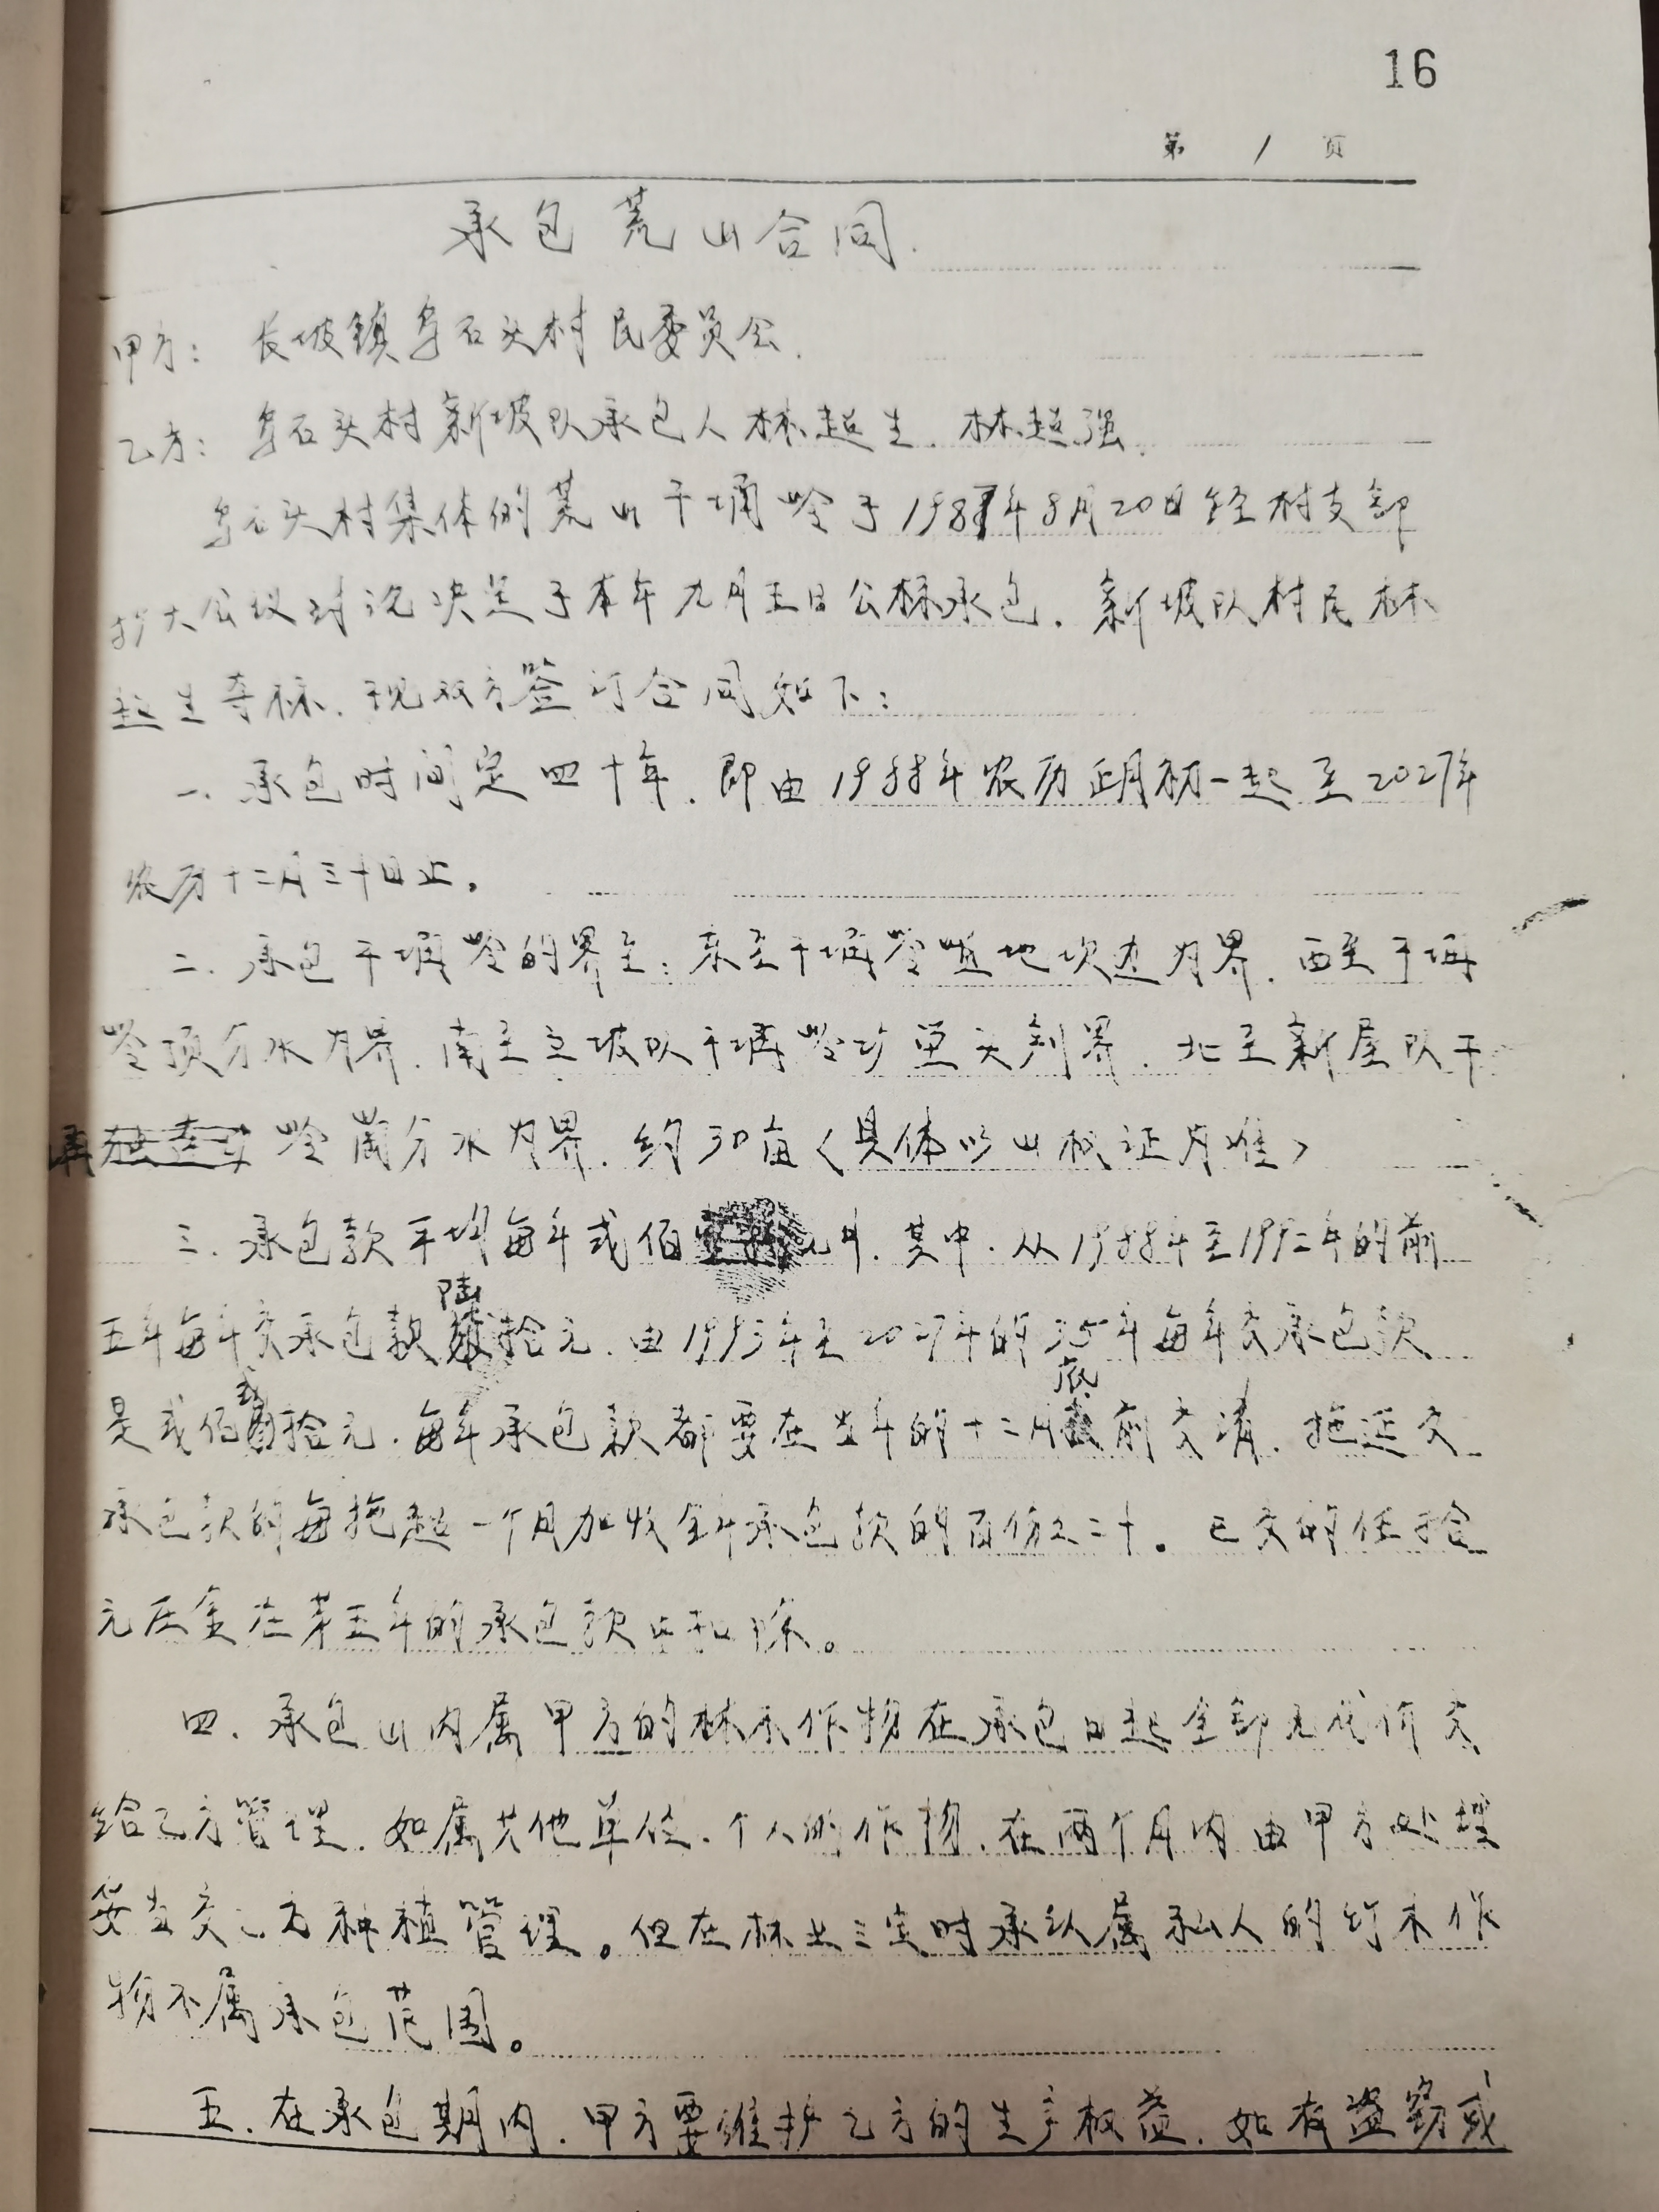 16
第 1 页
承包荒山合同.
甲方: 长坡镇乌石头村民委员会.
乙方: 乌石头村新坡队承包人林超生、林超强.
乌石头村集体的荒山干埇岭于1987年8月20日经村支部
扩大会议讨论决定于本年九月五日公标承包. 新坡队村民林
超生夺标. 现双方签订合同如下:
一. 承包时间定四十年. 即由1988年农历正月初一起至2027年
农历十二月三十日止。
二. 承包干埇岭的界至: 东至干埇岭 地坎边为界. 西至干埇
岭顶分水为界. 南至 坡队干埇岭 头 界. 北至新屋队干
埇 岭 分水为界. 约30亩(具体以山权证为准)
三. 承包款平均每年弍佰 元. 其中. 从1988年至1992年的前
五年每年交承包款陆拾元. 由1993年至2027年的35年每年交承包款
是弍佰 拾元. 每年承包款都要在当年的十二月底前交清. 拖延交
承包款的每拖超一个月加收全年承包款的百份之二十。已交的伍拾
元压金在第五年的承包款中扣除。
四. 承包山内属甲方的林木作物在承包日起全部无代价交
给乙方管理. 如属其他单位、个人的作物. 在两个月内由甲方处理
妥当交乙方种植管理。但在林业三定时承认属私人的竹木作
物不属承包范围。
五. 在承包期内. 甲方要维护乙方的生产权益. 如有盗窃或